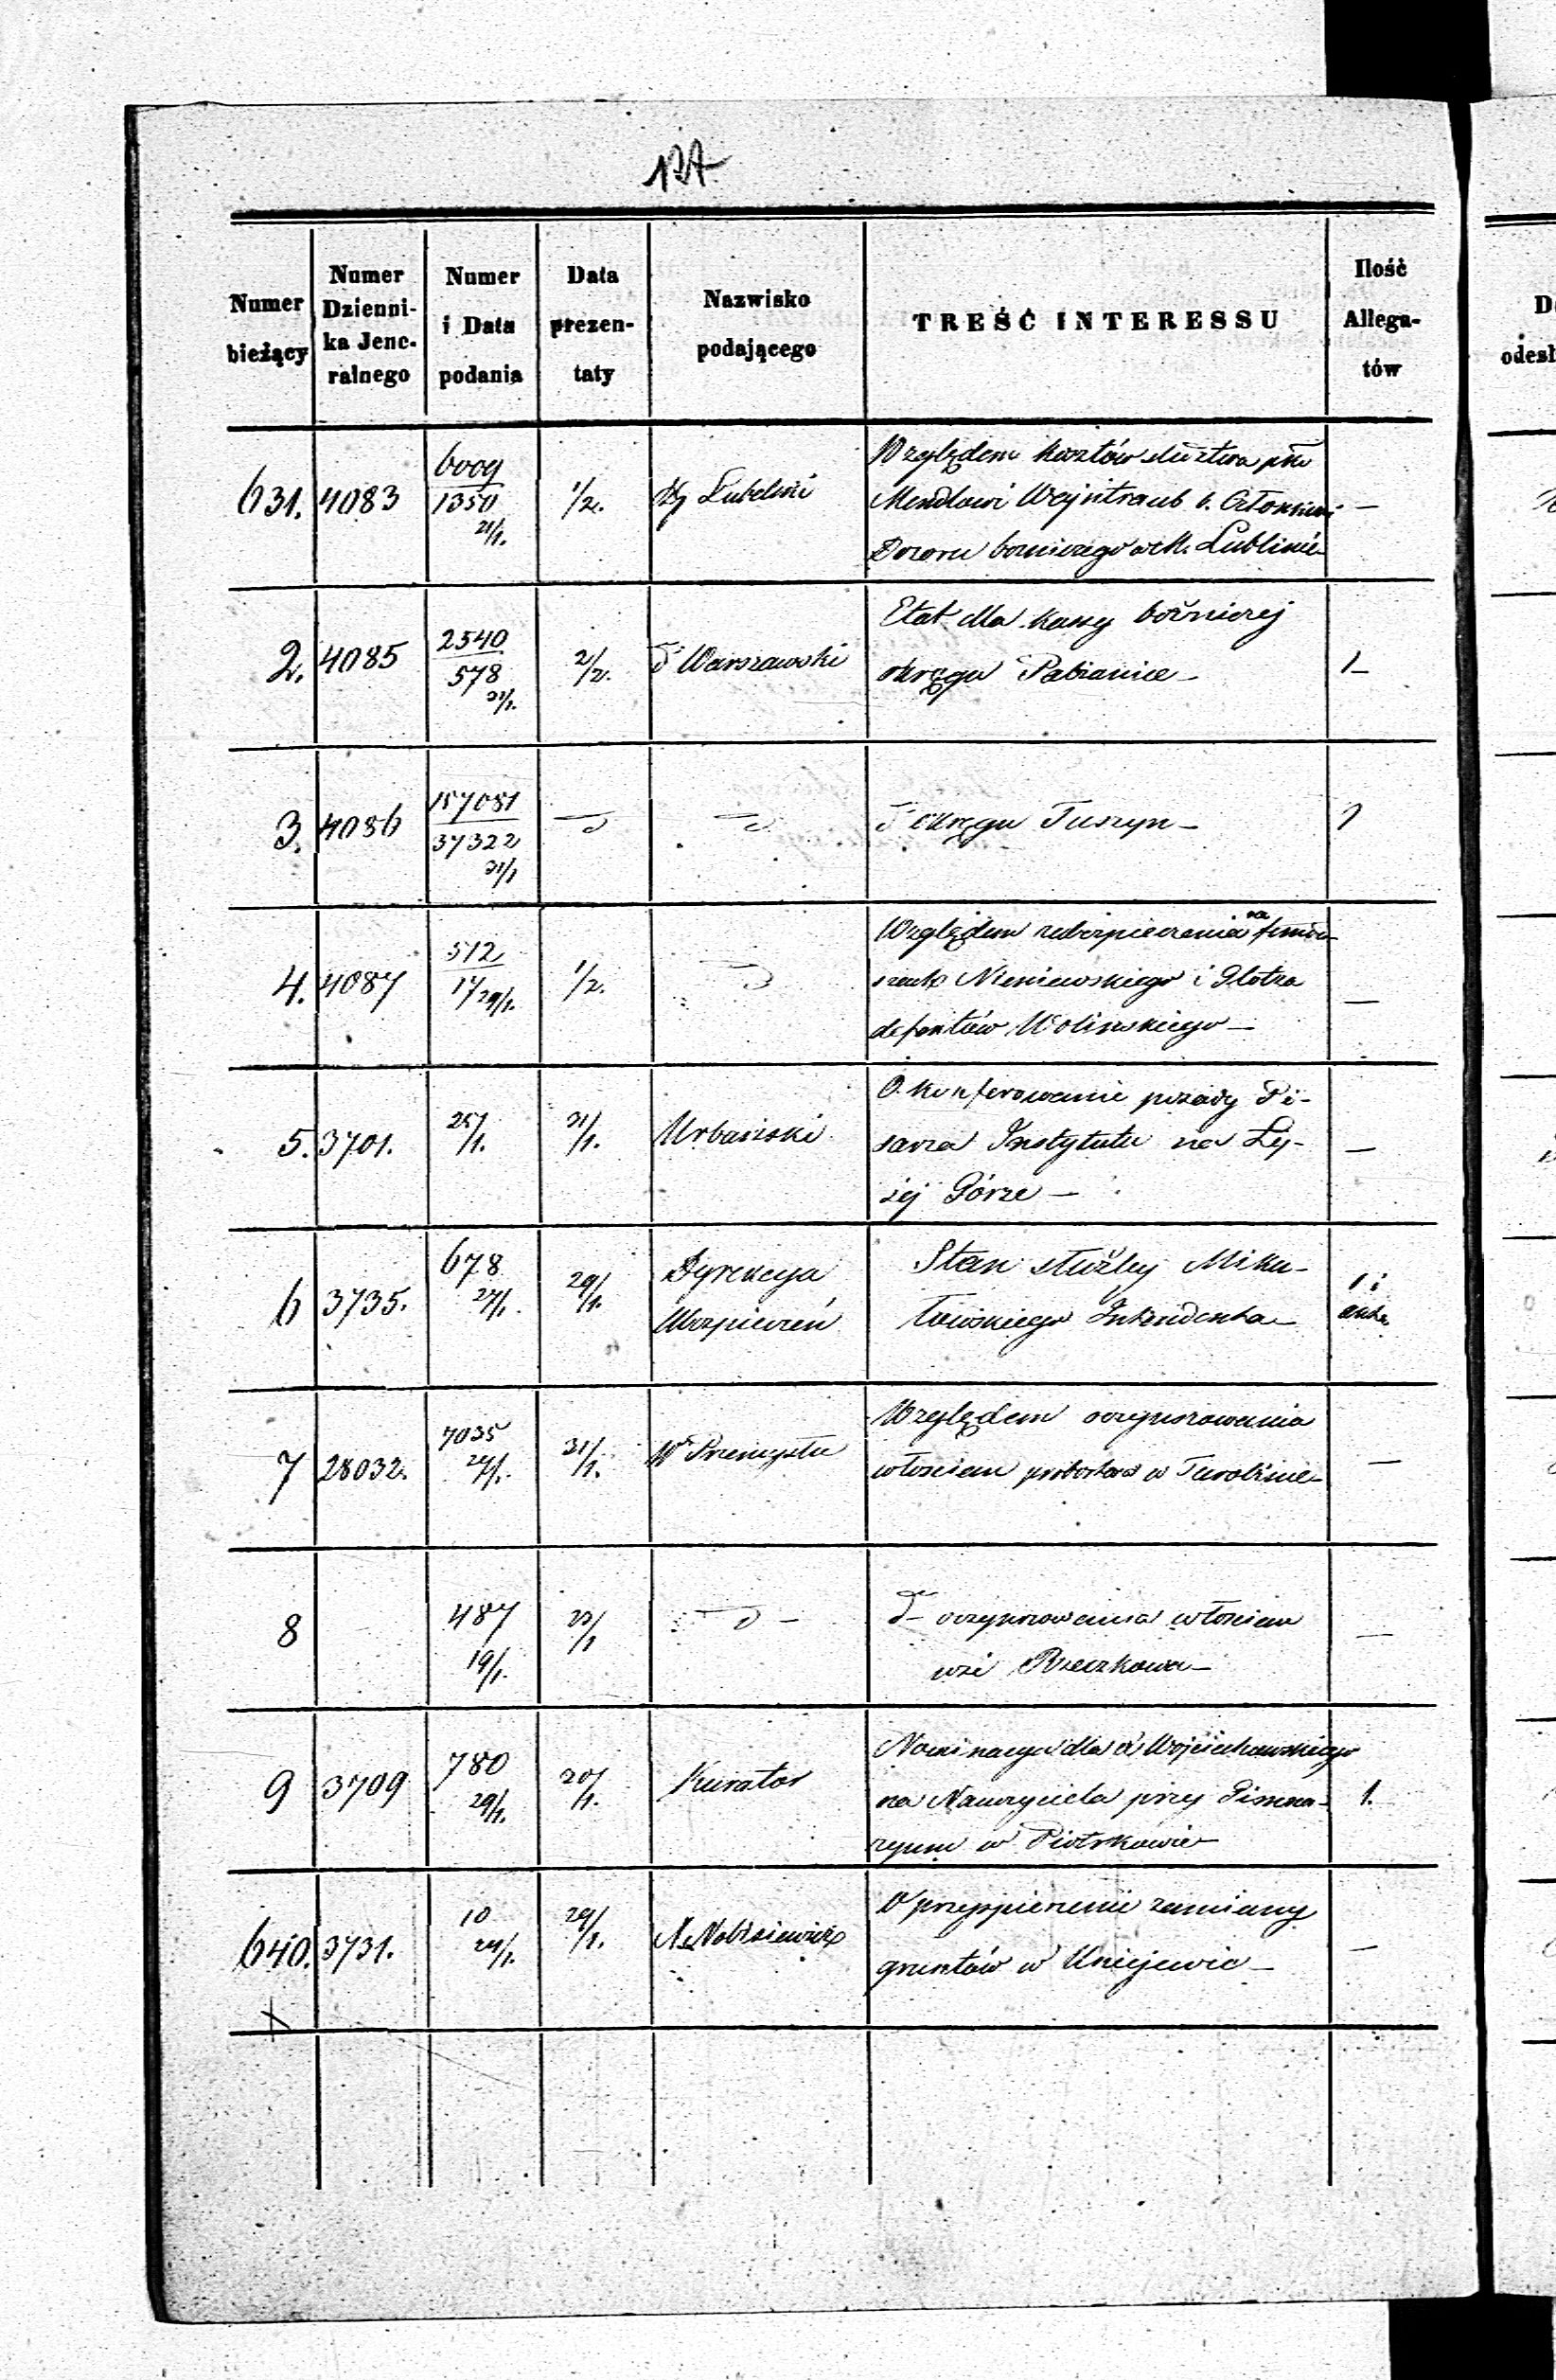 127
Numer bieżący
Numer Dzienni-ka Jene-ralnego
Numer i Data podania
Data prezen-taty
Nazwisko podającego
TREŚĆ INTERESSU
Ilość Allega-tów
631. 4083 6009/1350 21/1. 1/2. Rz Lubelski
Względem kosztów śledztwa pko
Mendlowi Wajntraub b. Członkowi —
Dozoru bożniczego w M. Lublinie
2. 4085 2540/578 31/1. 2/2. d° Warszawski
Etat dla kassy bożniczej
okręgu Pabianice — 1
3. 4086 157081/37322 31/1 d° d° d° okręgu Tuszyn — 1
4. 4087 512/17 29/1. 1/2. d°
Względem zabezpieczenia na
Nieniewskiego i Plotza —
defektów Wolińskiego —
5. 3701. 25/1. 31/1. Urbański
O konferowanie posady Pi-
sarza Instytutu na Ły-
sej Górze —
6 3735. 678 27/1. 29/1. Dyrekcya Ubezpieczeń
Stan służby Miku-
łowskiego Intendenta — 1 i
7 28032. 7035 27/1. 31/1. Wł Przemysłu
Względem oczynszowania
włościan probostwa w Turobinie —
8 487 19/1. 23/1 d° —
d° oczynszowania włościan
wsi Rzeczkowa —
9 3709 780 29/1. 20/1. Kurator
Nominacya dla Wojciechowskiego
na Nauczyciela przy Gimna- 1.
zyum w Piotrkowie —
640. 3731. 10 24/1. 29/1.
O przyspieszenie zamiany
gruntów w Kniejewie —